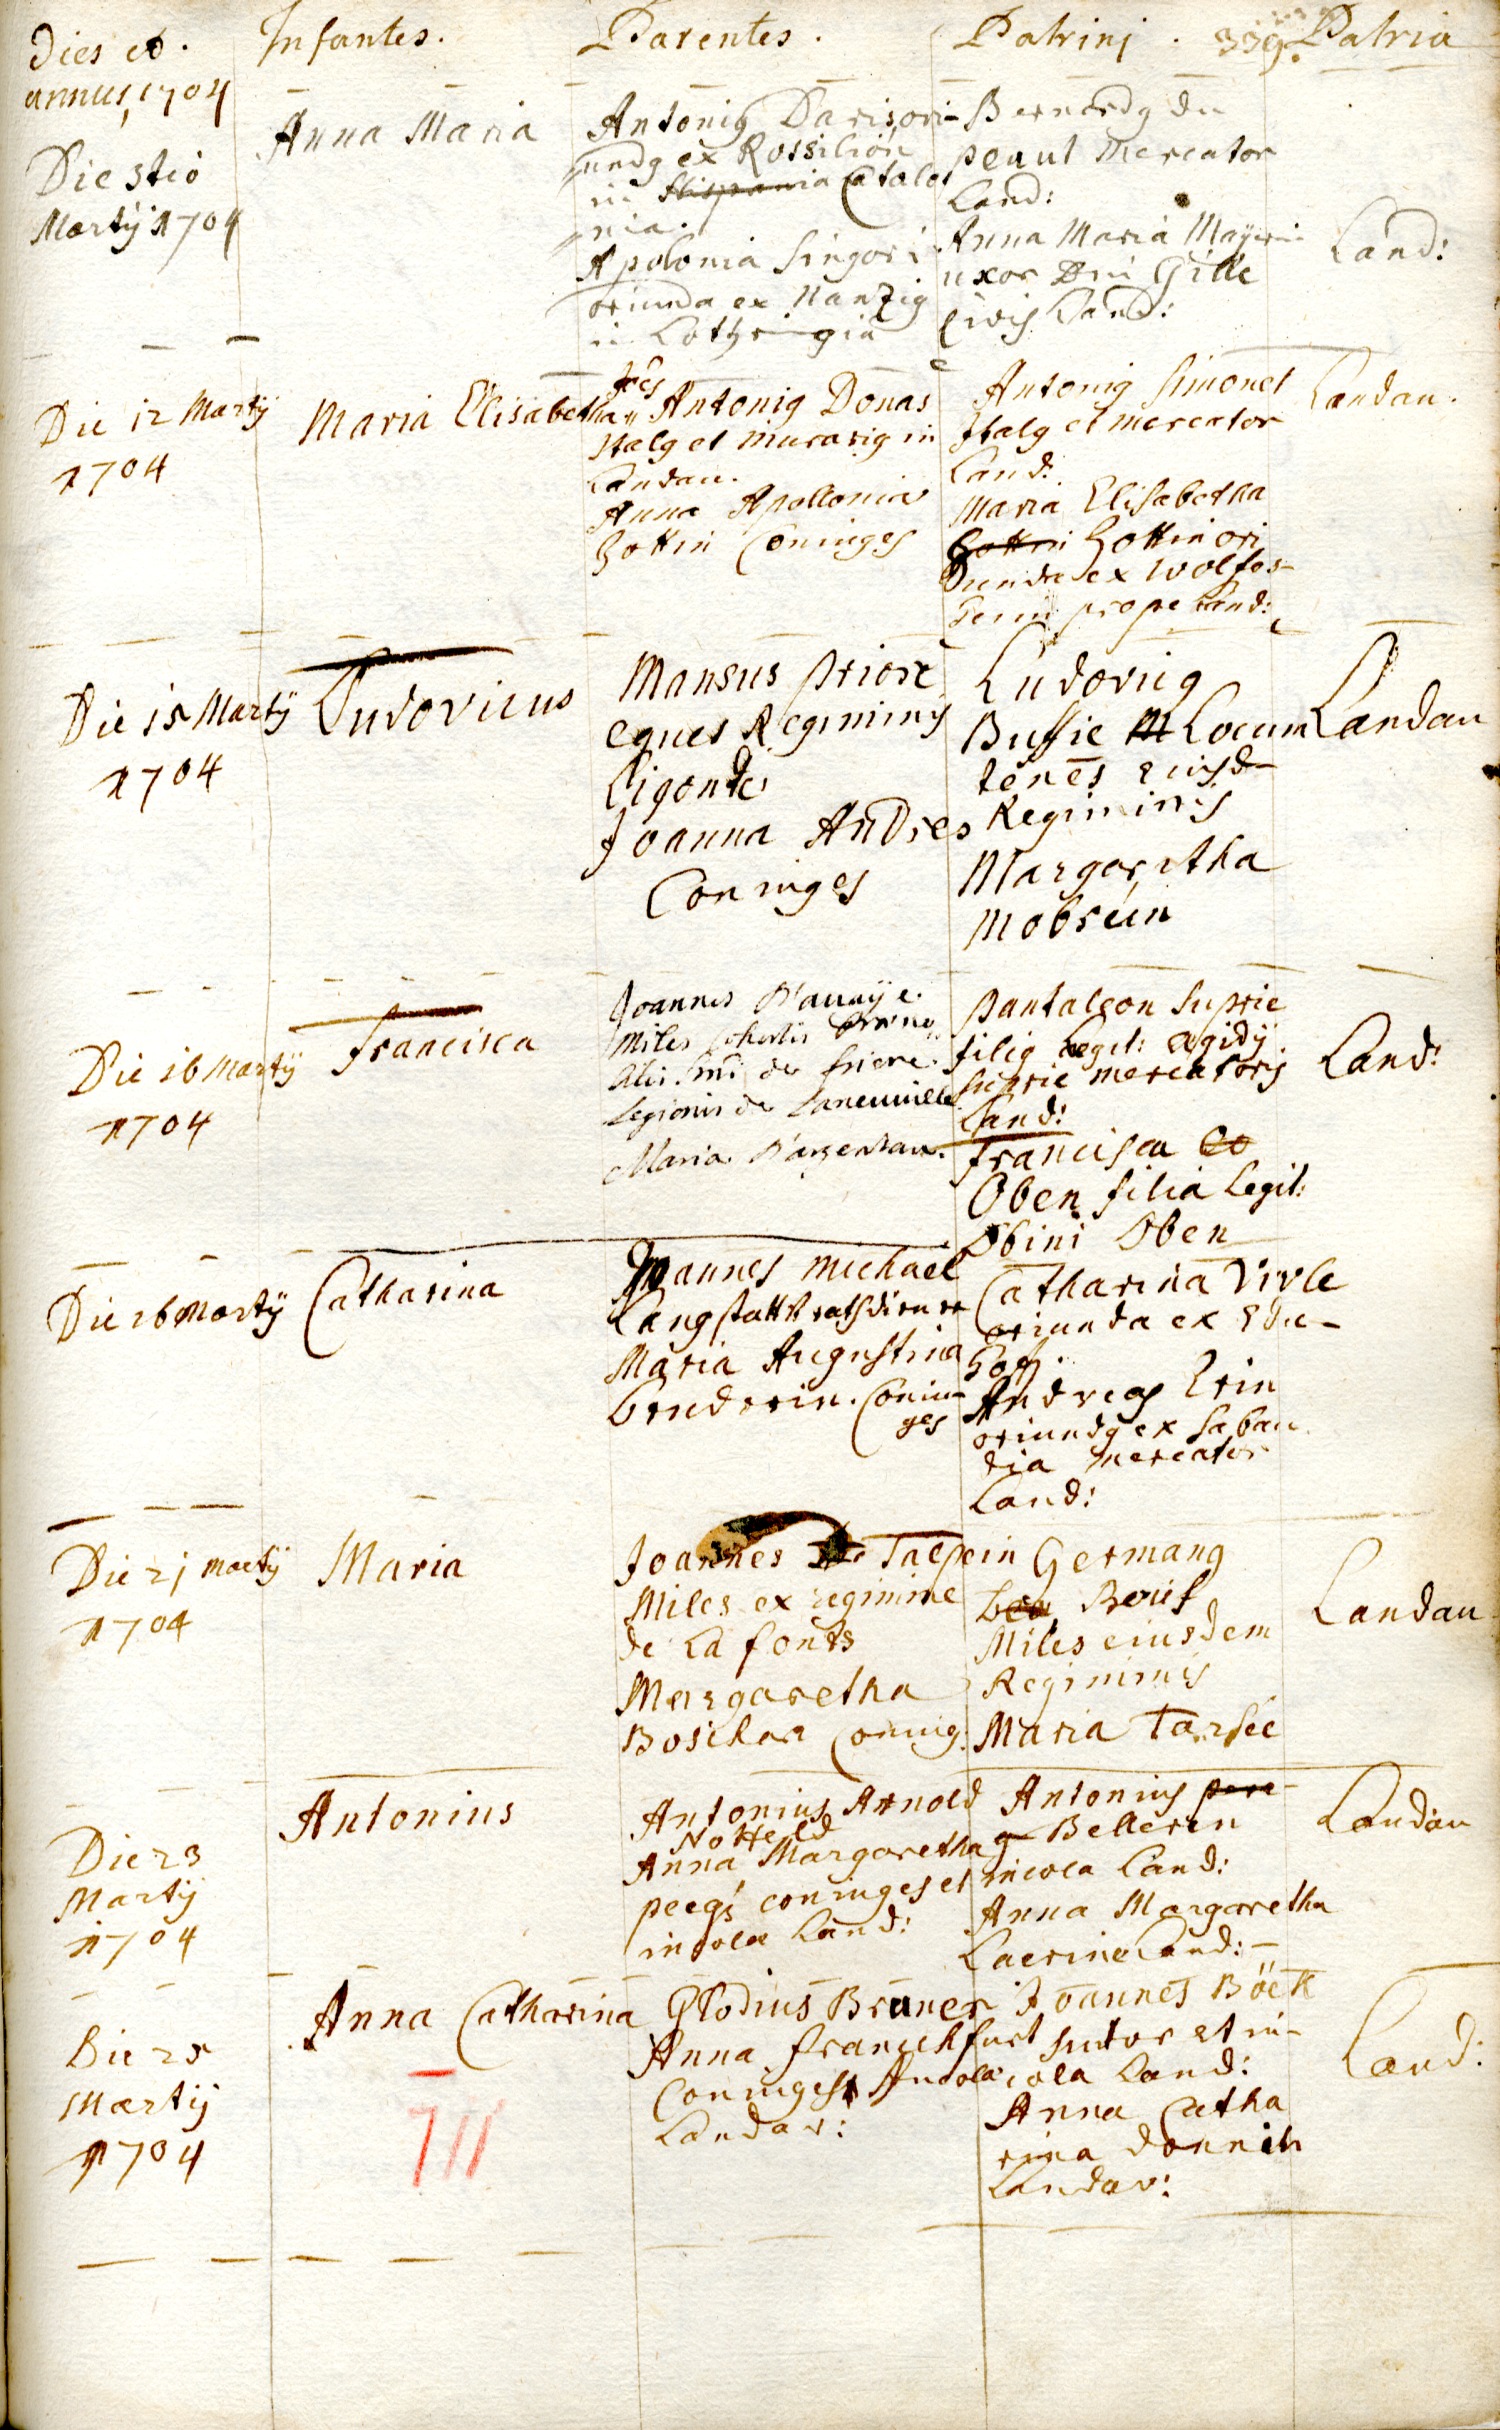 Dies et annus 1704
Infantes.
Parentes.
Patrini.
339.
Patria
Die 3tio
Martij 1704
Anna Maria
Antonig Darisori-
undg ex Rossilion
in Hispania Catalo
nia.
Apolonia Singori
oriunda ex Nanzig
in Lothringia
Bernardg du
penut Mercator
Land:
Anna Maria Mayerin
uxor Dni Gille
Civis Land:
Land:
Die 12 Martij
1704
Maria Elisabetha
Joes
Antonig Donas
Italg et murarig in
Landau.
Anna Apollonia
Gottin Coniuges
Antonig Simonet
Italg et mercator
Land:
Maria Elisabetha
Gottin Gottin ori
unda ex Wolfes-
heim prope Land:
Landau.
Die 15 Martij
1704
Ludovicus
Mansus priore
eques Regiminis
Ligonde
Joanna Andres
Coniuges
Ludovicg
Bussie Locum
tenes eiusd
Regiminis
Margaretha
Mobsein
Landau
Die 16 Martij
1704
Francisca
Joannes
Miles Cohortis
Dni de
Legionis de Laneuuille
Maria
Pantaleon Suprie
filig Legit: Egidij
Suprie mercatoris
Land:
Francisca
Oben filia Legit:
Obini Oben
Land:
Die 26 Martij
Catharina
Joannes Michael
Lang statt
Maria Augustina
Coniu-
ges
Catharina Virle
oriunda ex Edic-
hoff.
Andreas Erin
oriundg ex Sabau
dia mercator
Land:
Die 21 Martij
1704
Maria
Joannes Talpein
Miles ex regimine
de La fonts
Margaretha
Boschar Coniug:
Germang
Bouis
Miles eiusdem
Regiminis
Maria Tarsee
Landau
Die 23
Martij
1704
Antonius
Antonius Arnold
Notteld
Anna Margaretha
peegs coniuges et
incolae Land:
Antonius
Belleren
incola Land:
Anna Margaretha
Laerine Land:
Landau
Die 25
Martij
1704
Anna Catharina
Glodius Bruner
Anna Franckfurt
Coniuges Incolae
Landav:
Joannes Böck
sutor et in-
cola Land:
Anna Catha
rina donnin
Landav:
Land: